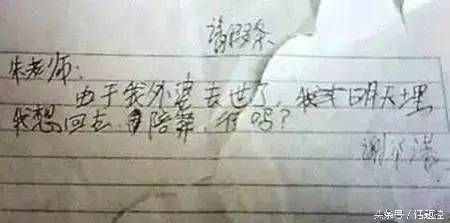 请假条
朱老师:
由于我外婆去世了,我 明天埋
我想回去 陪葬,行吗?
谢
头条号 /